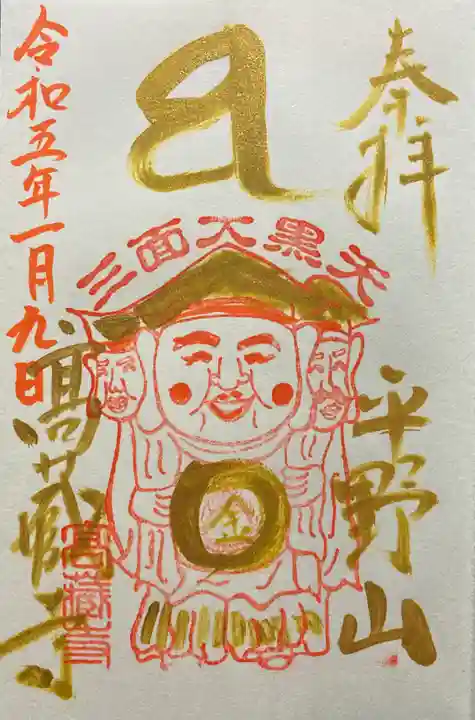 奉拝
平野山
三面大黒天
金
高蔵寺
高蔵寺
令和五年一月九日